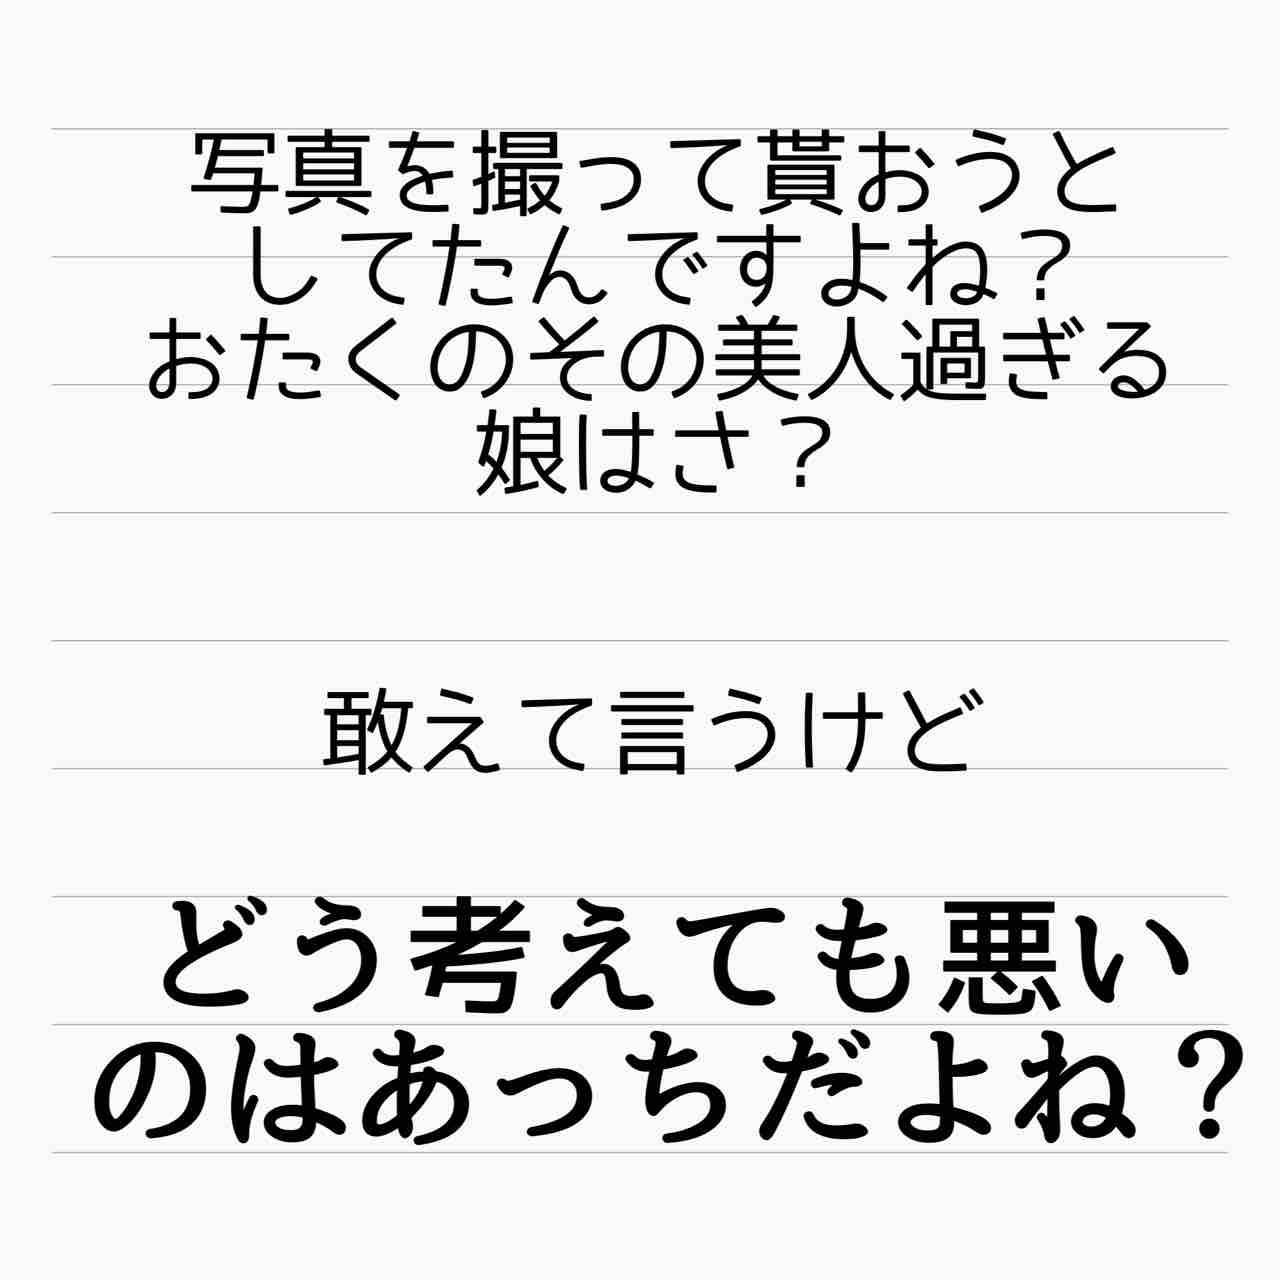 写真を撮って貰おうと
してたんですよね？
おたくのその美人過ぎる
娘はさ？
敢えて言うけど
どう考えても悪い
のはあっちだよね？